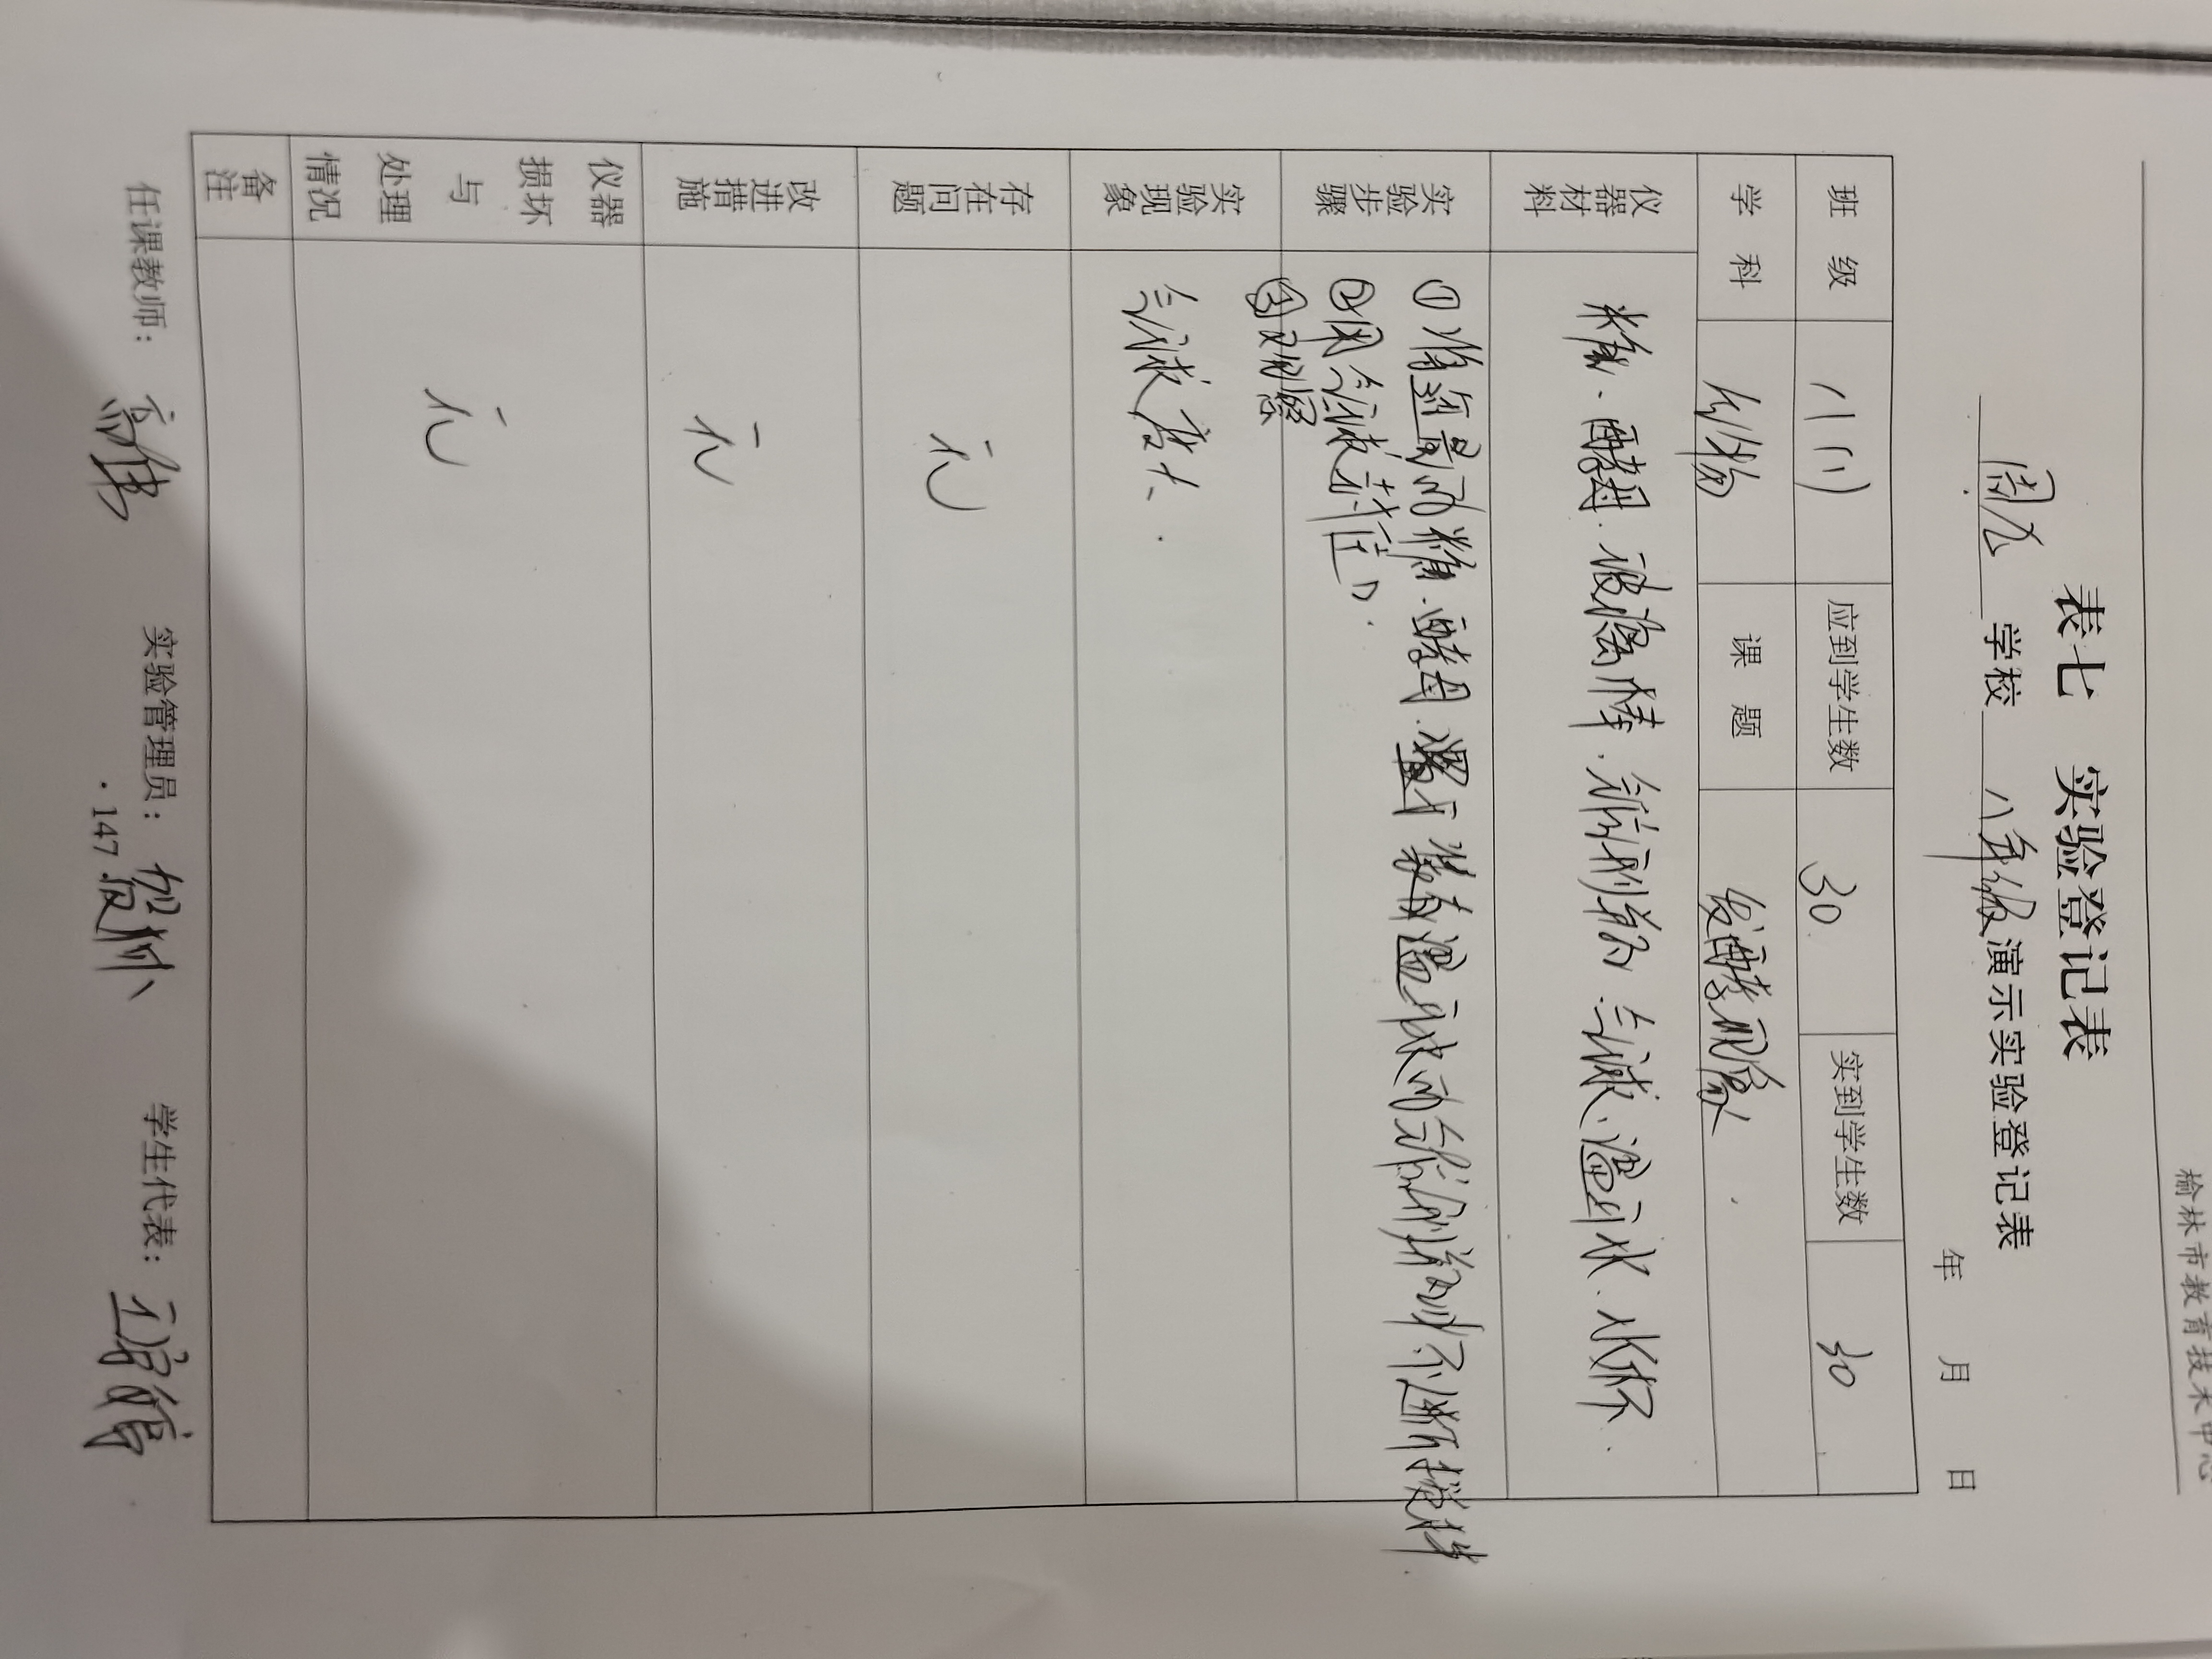 榆林市教育技术中心
表七 实验登记表
学校 八年级 演示实验登记表
年 月 日
班级 八(1) 应到学生数 30 实到学生数 30
学科 生物 课题 发酵现象
仪器材料 糖、酵母、玻璃棒、矿泉水瓶、气球、温开水、水杯
实验步骤 ①将适量的糖、酵母、置于装有温开水的 不断搅拌
②用气球封住口.
③观察
实验现象 气球变大.
存在问题 无
改进措施 无
仪器损坏与处理情况 无
备注
任课教师: 实验管理员: 学生代表:
·147·